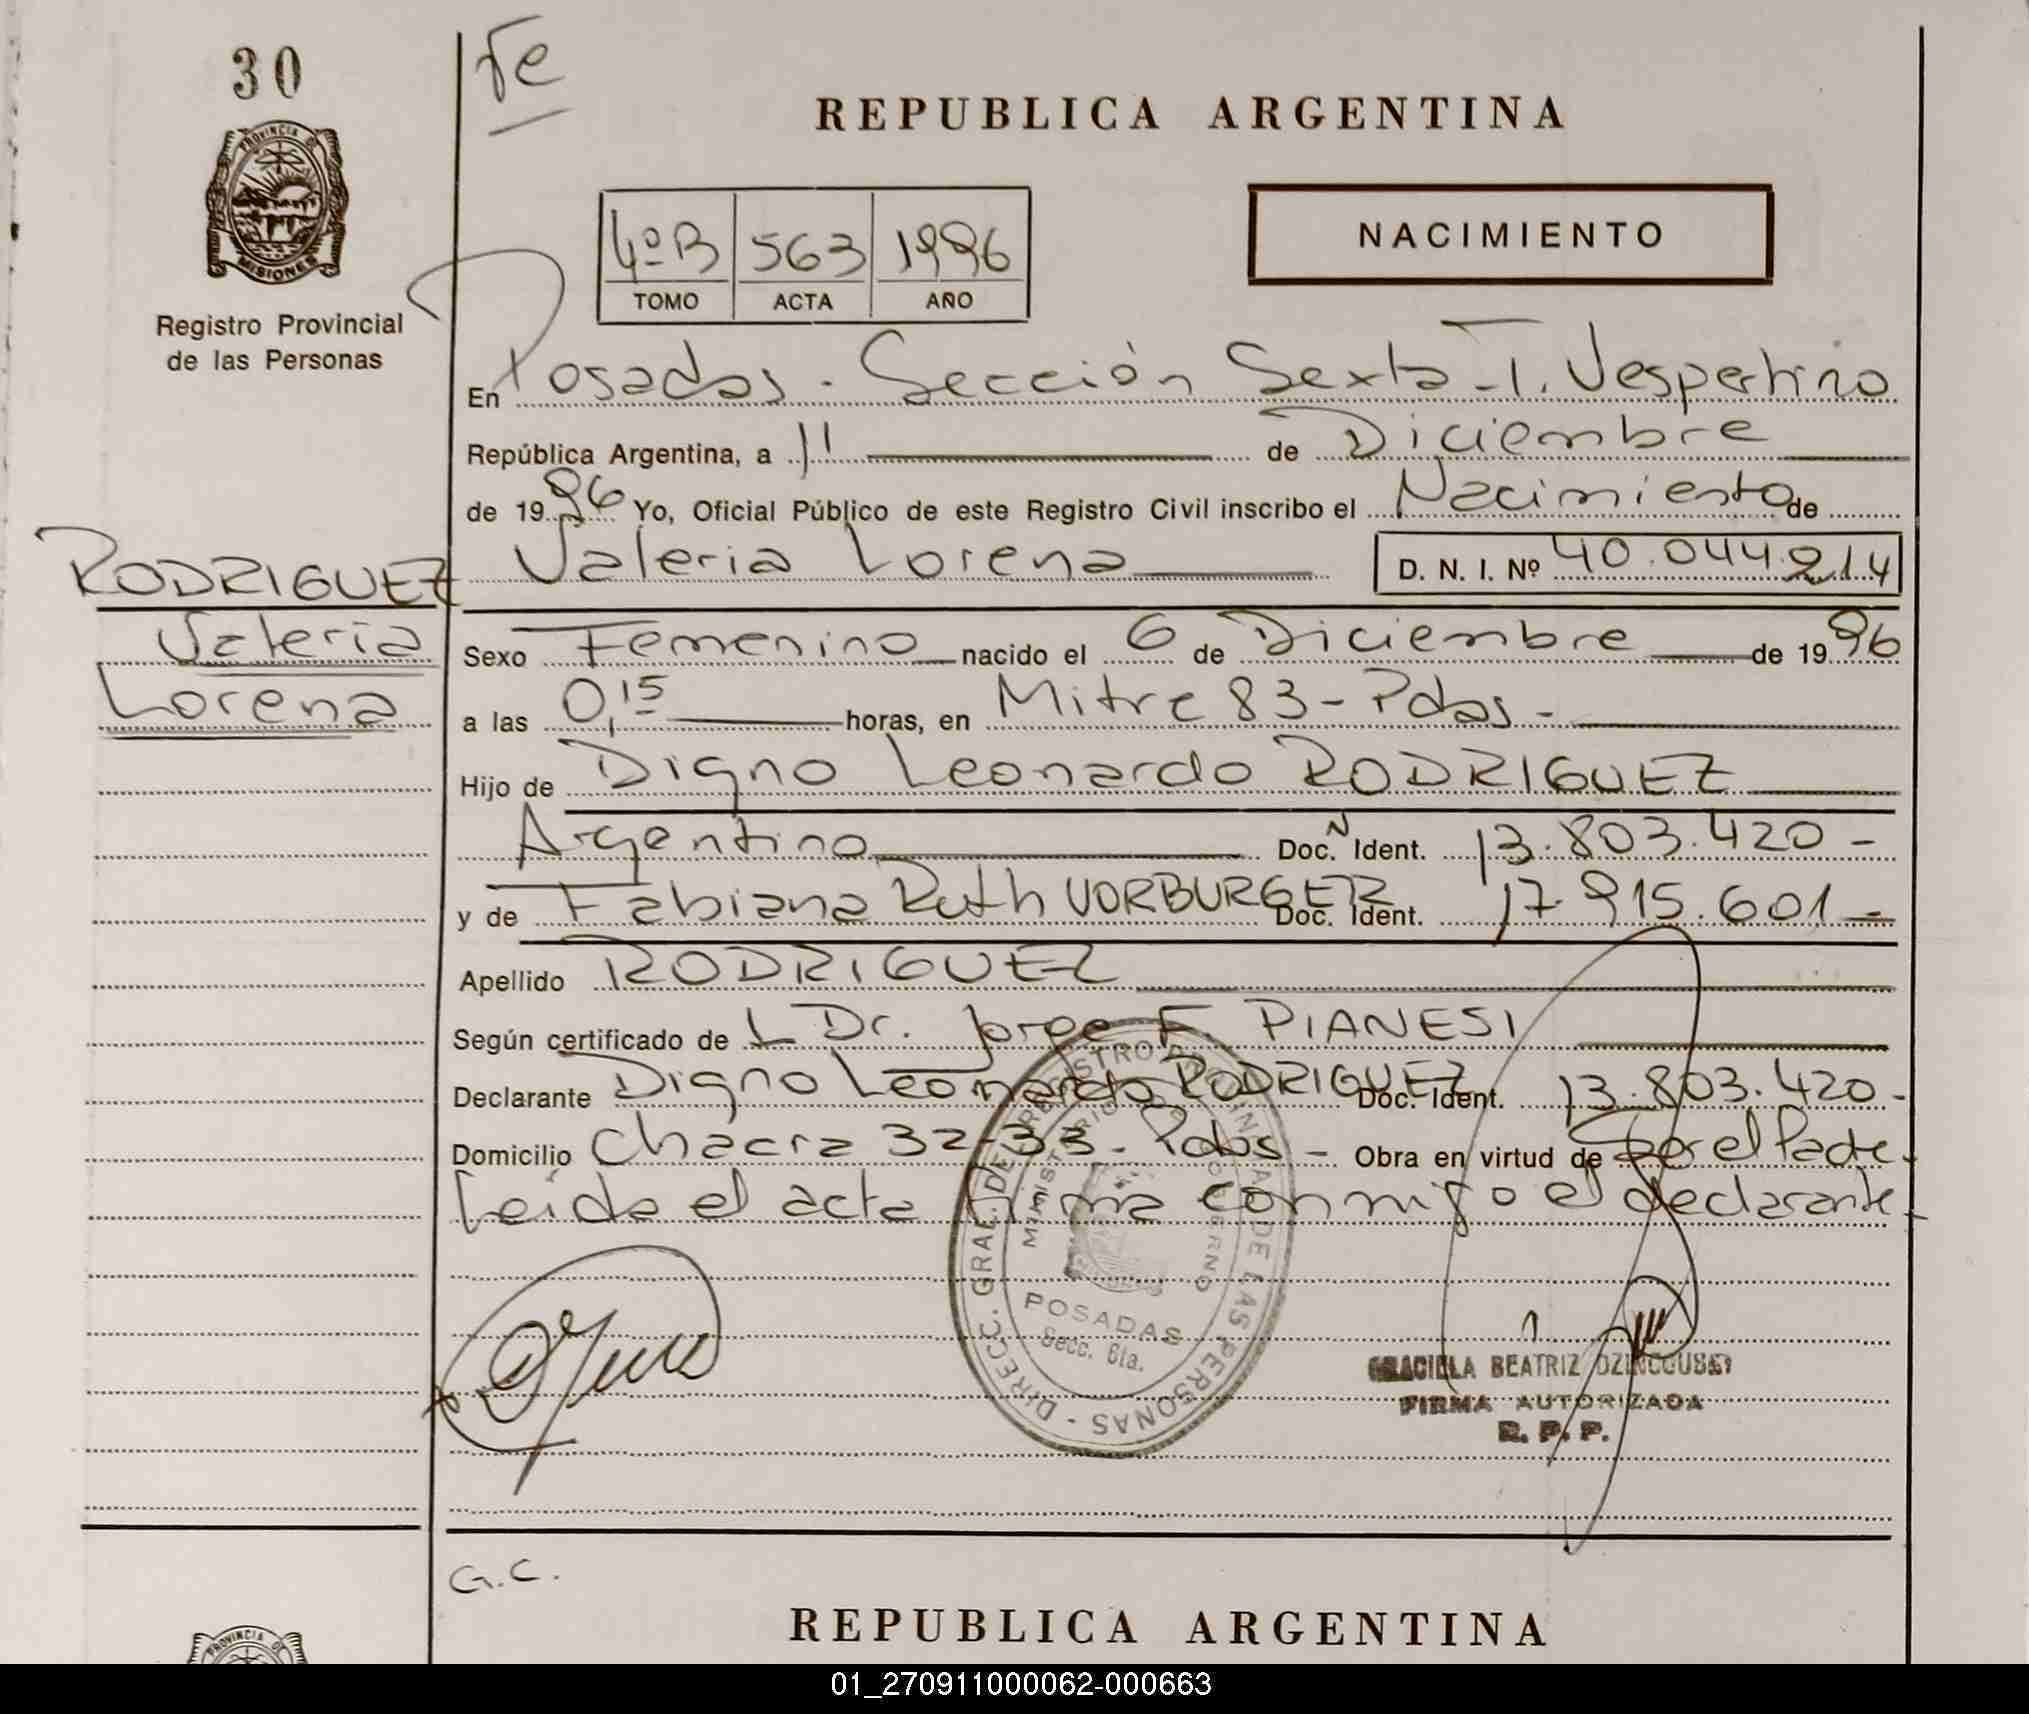 30
Fe
REPUBLICA ARGENTINA
PROVINCIA DE
MISIONES
Registro Provincial
de las Personas
4º B 563 1996
TOMO ACTA AÑO
NACIMIENTO
En Posadas - Sección Sexta - T. Vespertino
República Argentina, a 11 de Diciembre
de 1996 Yo, Oficial Público de este Registro Civil inscribo el Nacimiento de
RODRIGUEZ
Valeria
Lorena
Valeria Lorena D. N. I. Nº 40.044.914
Sexo Femenino nacido el 6 de Diciembre de 1996
a las 0,15 horas, en Mitre 83 - Pdas -
Hijo de Digno Leonardo RODRIGUEZ
Argentino Doc. N Ident. 13.803.420 -
y de Fabiana Ruth VORBURGER Doc. Ident. 17.915.601 -
Apellido RODRIGUEZ
Según certificado de L Dr. Jorge F. PIANESI
Declarante Digno Leonardo RODRIGUEZ Doc. Ident. 13.803.420 -
Domicilio Chacra 32-33 - Pdas - Obra en virtud de Ser el Padre -
Leída el acta firma conmigo el declarante -
DIRECC. GRAL. DEL REGISTRO PROVINCIAL DE LAS PERSONAS -
MINISTERIO DE GOBIERNO
POSADAS
Secc. 6ta.
GRACIELA BEATRIZ
FIRMA AUTORIZADA
R. P. P.
G.C.
REPUBLICA ARGENTINA
PROVINCIA DE
01_270911000062-000663